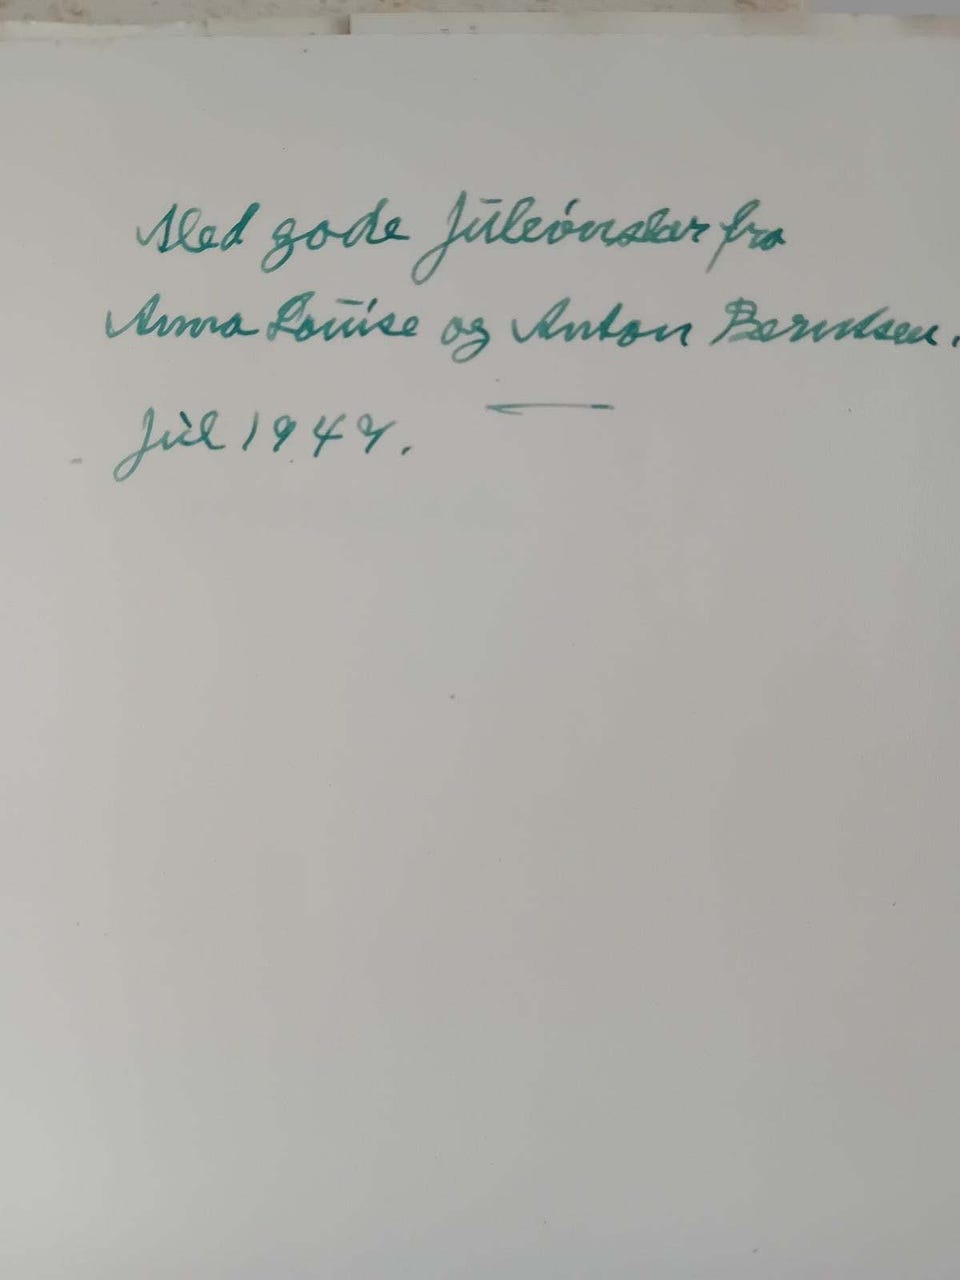 Med gode Juleønsker fra
Anna Louise og Anton Berntsen.
Jul 1947.